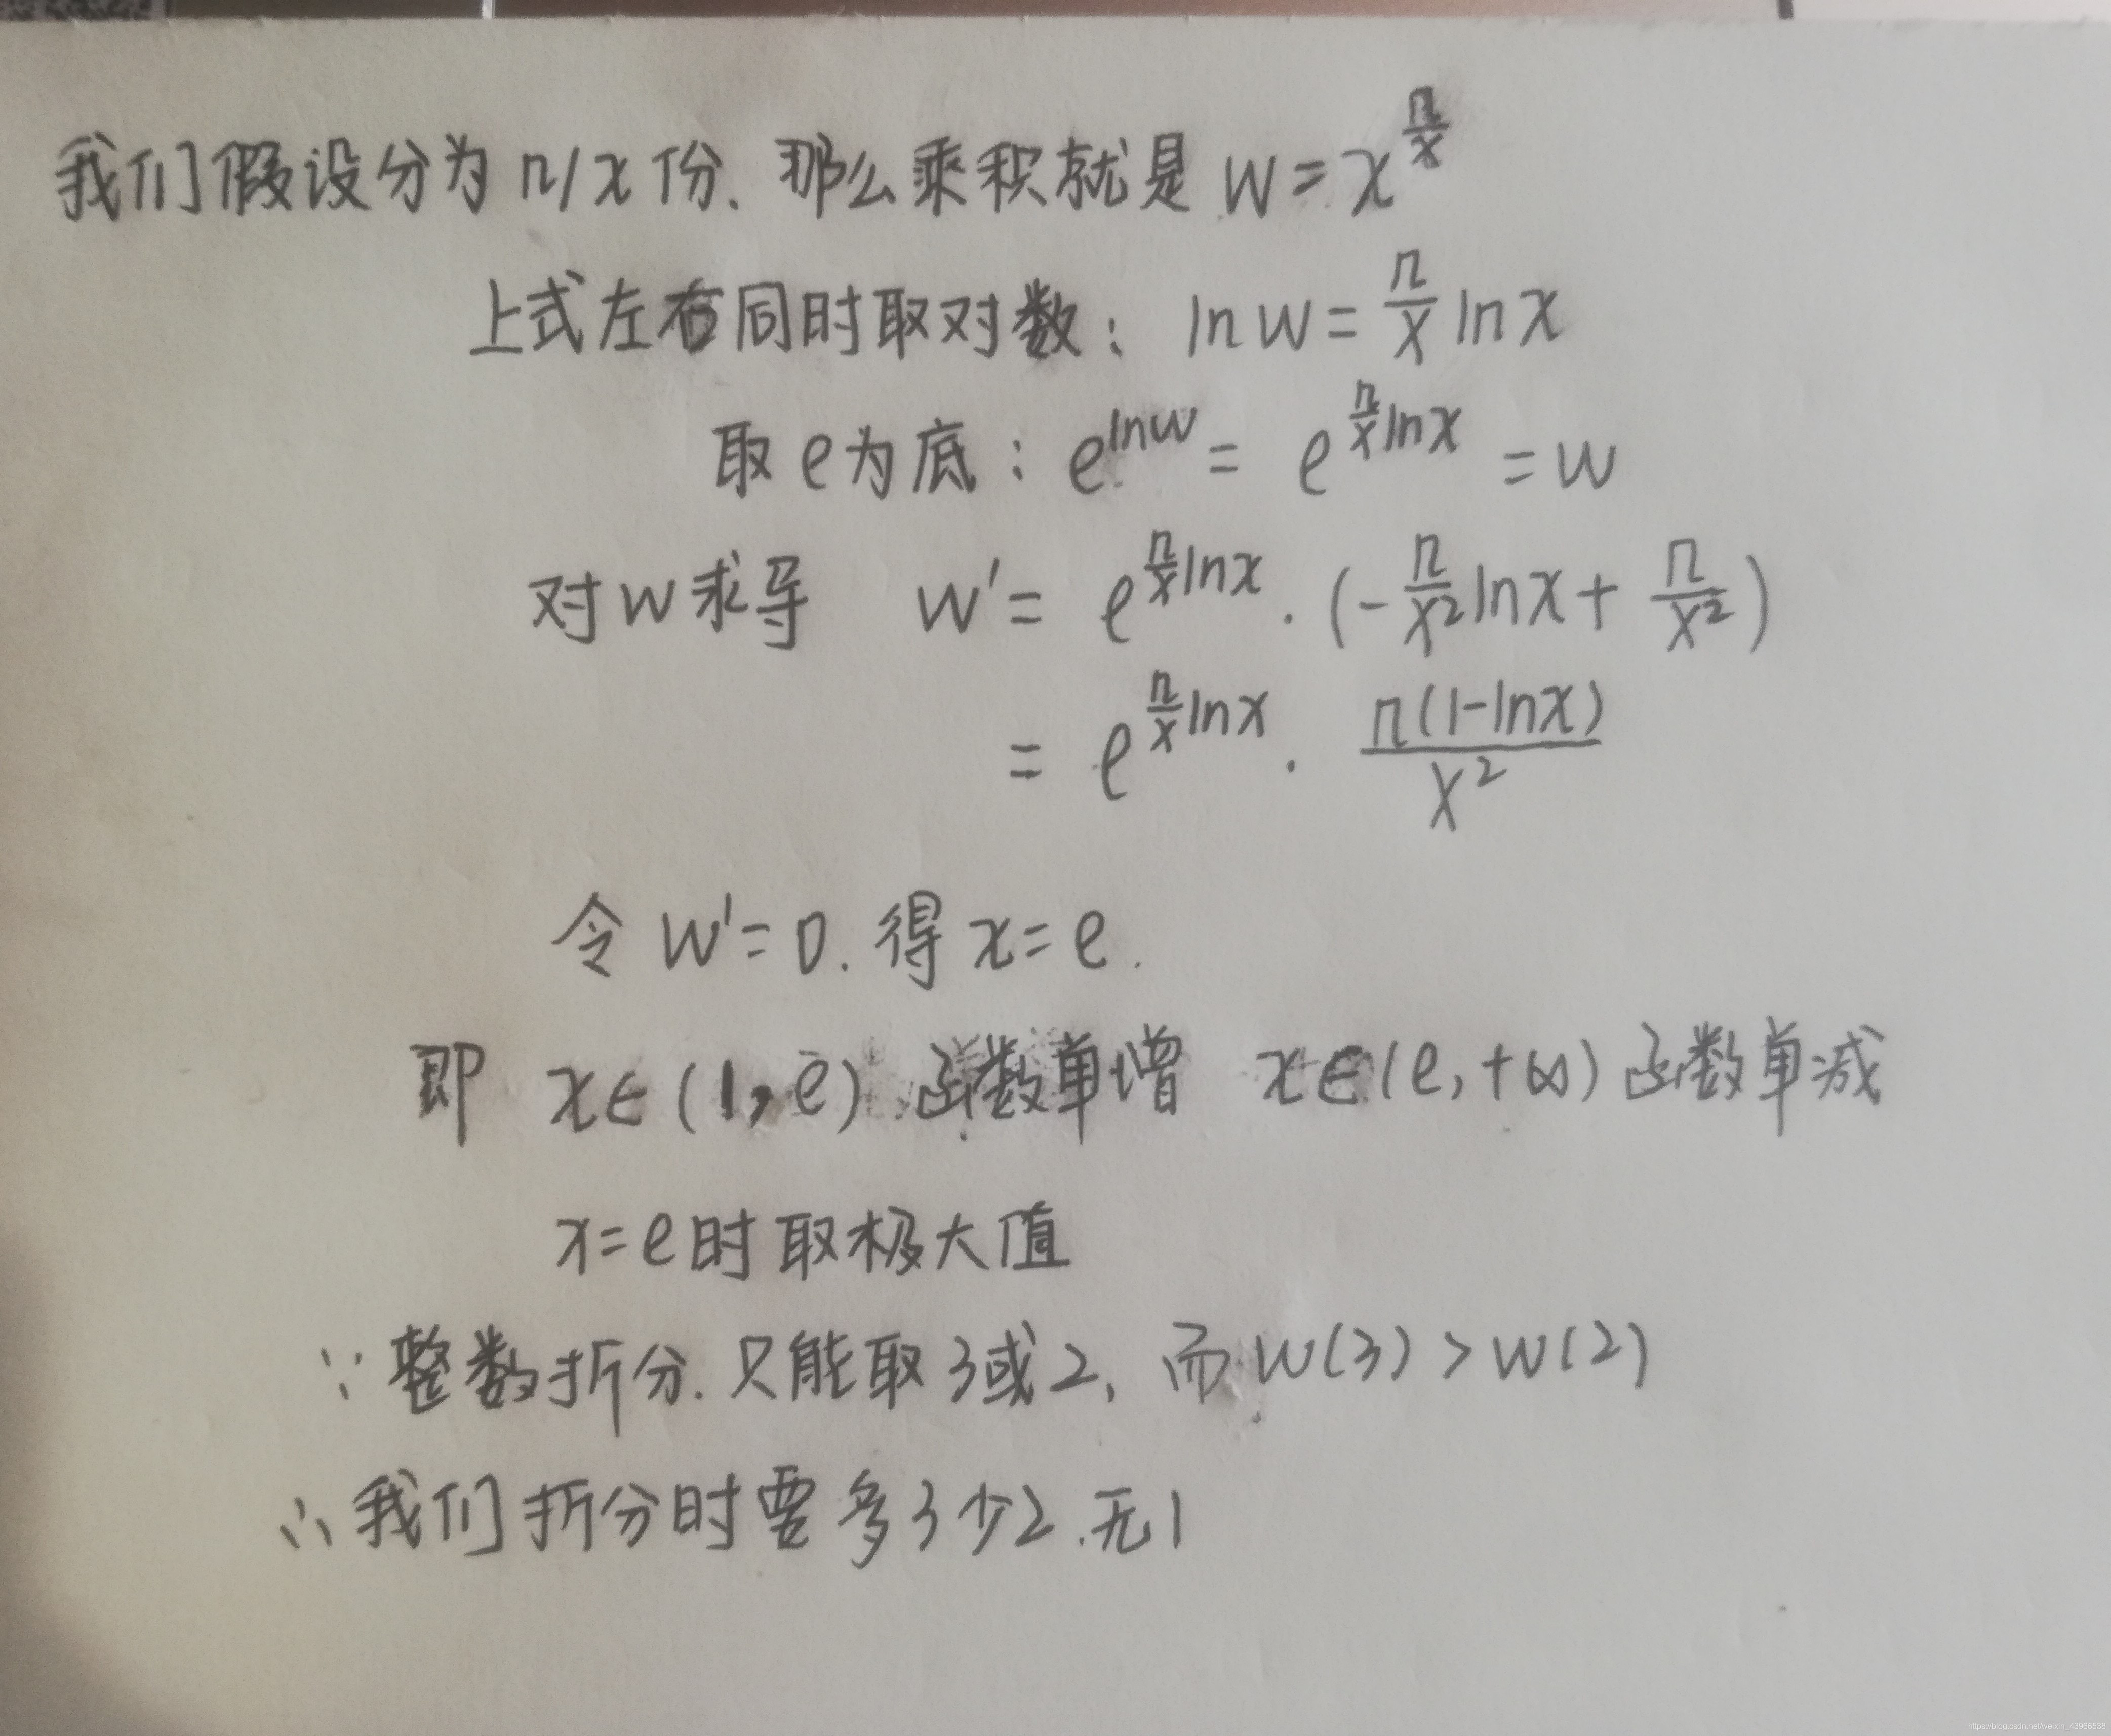 我们假设分为 n/x 份. 那么乘积就是 W = x^(n/x)
上式左右同时取对数: ln W = n/x ln x
取 e 为底: e^(ln W) = e^(n/x ln x) = W
对 W 求导 W' = e^(n/x ln x) · (- n/x² ln x + n/x²)
= e^(n/x ln x) · n(1-ln x)/x²
令 W' = 0. 得 x = e.
即 x∈(1, e) 函数单增 x∈(e, +∞) 函数单减
x = e 时取极大值
∵ 整数折分. 只能取 3 或 2, 而 W(3) > W(2)
∴ 我们折分时要多 3 少 2. 无 1
https://blog.csdn.net/weixin_43906598